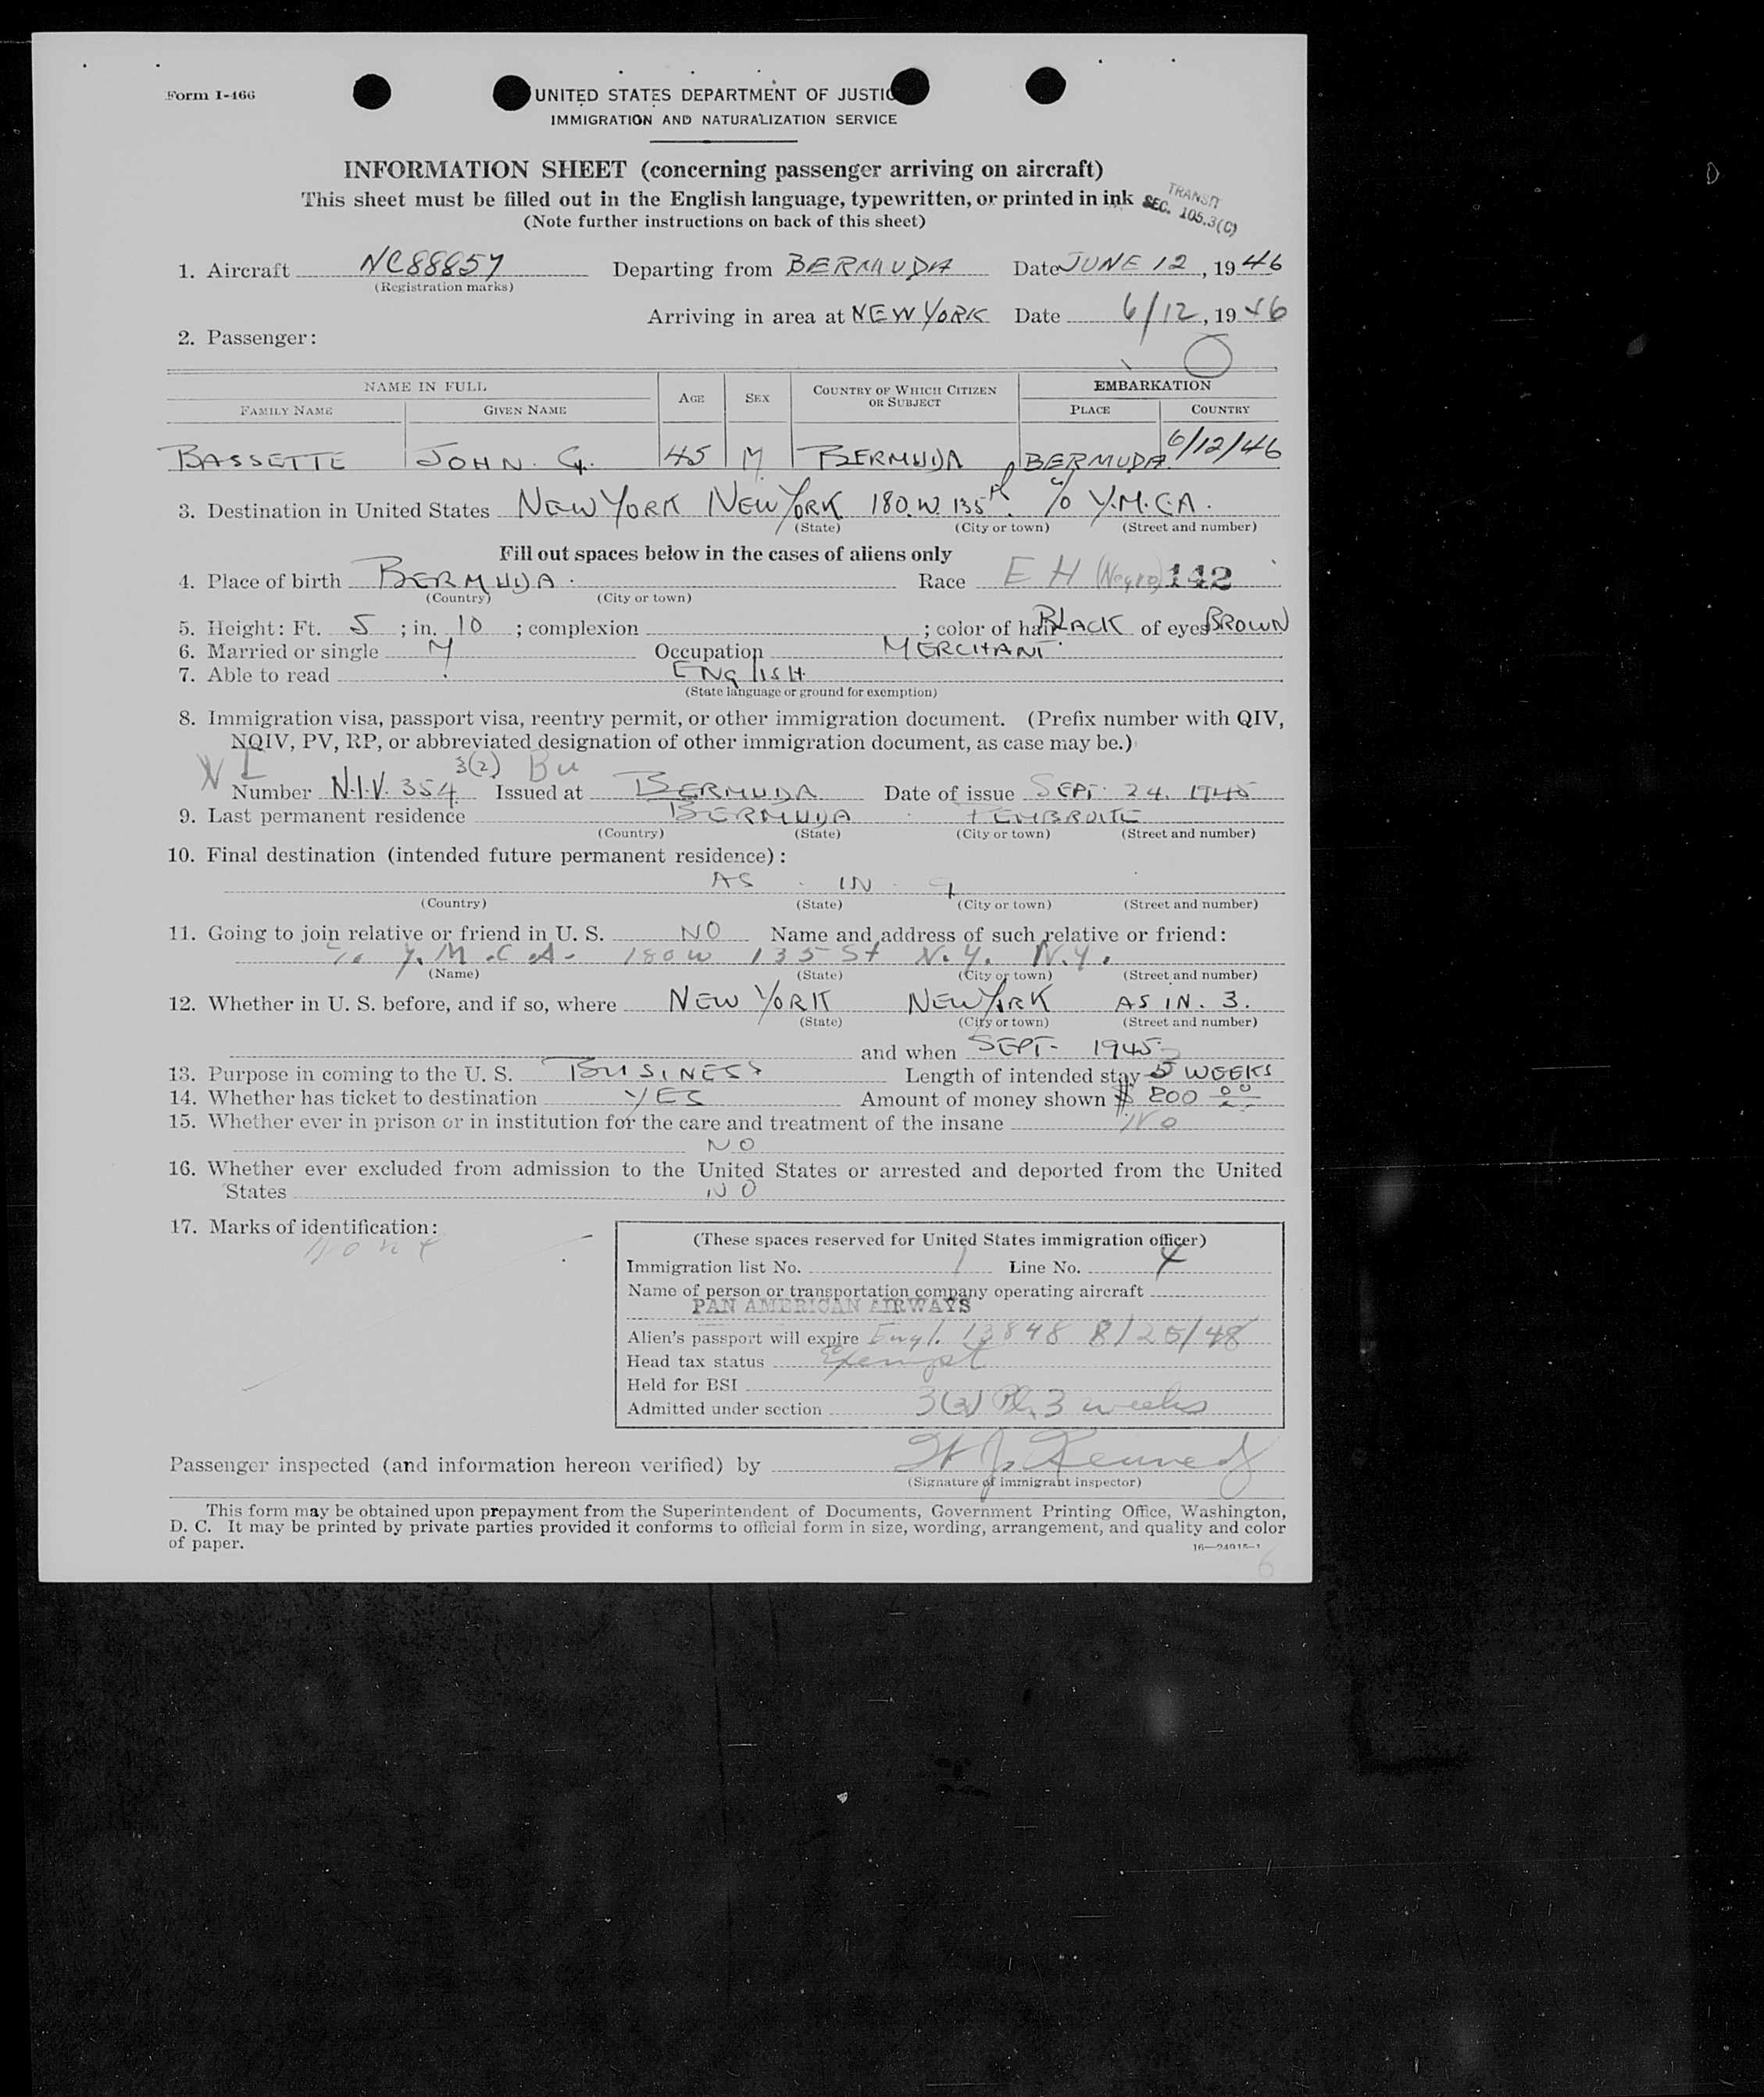 Form I-466
UNITED STATES DEPARTMENT OF JUSTIC
IMMIGRATION AND NATURALIZATION SERVICE
INFORMATION SHEET (concerning passenger arriving on aircraft)
This sheet must be filled out in the English language, typewritten, or printed in ink
TRANSIT
SEC. 105.3(C)
(Note further instructions on back of this sheet)
1. Aircraft NC88857 Departing from BERMUDA Date JUNE 12, 1946
(Registration marks)
Arriving in area at NEW YORK Date 6/12, 1946
2. Passenger:
NAME IN FULL AGE SEX COUNTRY OF WHICH CITIZEN OR SUBJECT EMBARKATION
FAMILY NAME GIVEN NAME PLACE COUNTRY
BASSETTE JOHN. G. 45 M BERMUDA BERMUDA 6/12/46
3. Destination in United States NEW YORK NEW YORK 180. W. 135th. c/o Y.M.C.A.
(State) (City or town) (Street and number)
Fill out spaces below in the cases of aliens only
4. Place of birth BERMUDA. Race E H (Negro) 142
(Country) (City or town)
5. Height: Ft. 5 ; in. 10 ; complexion ; color of hair BLACK of eyes BROWN
6. Married or single M Occupation MERCHANT.
7. Able to read ENGLISH.
(State language or ground for exemption)
8. Immigration visa, passport visa, reentry permit, or other immigration document. (Prefix number with QIV,
NQIV, PV, RP, or abbreviated designation of other immigration document, as case may be.)
3(2) Bu
Number N.I.V. 354 Issued at BERMUDA Date of issue SEPT. 24. 1945
9. Last permanent residence BERMUDA PEMBROKE
(Country) (State) (City or town) (Street and number)
10. Final destination (intended future permanent residence):
AS IN 9
(Country) (State) (City or town) (Street and number)
11. Going to join relative or friend in U. S. NO Name and address of such relative or friend:
c/o Y.M.C.A. 180 W 135 St N.Y. N.Y.
(Name) (State) (City or town) (Street and number)
12. Whether in U. S. before, and if so, where NEW YORK NEW YORK AS IN. 3.
(State) (City or town) (Street and number)
and when SEPT- 1945
13. Purpose in coming to the U. S. BUSINESS Length of intended stay 3 WEEKS
14. Whether has ticket to destination YES Amount of money shown $ 800 00
15. Whether ever in prison or in institution for the care and treatment of the insane No
NO
16. Whether ever excluded from admission to the United States or arrested and deported from the United
States NO
17. Marks of identification:
None
(These spaces reserved for United States immigration officer)
Immigration list No. 1 Line No. 4
Name of person or transportation company operating aircraft
PAN AMERICAN AIRWAYS
Alien's passport will expire Engl. 13848 8/25/48
Head tax status Exempt
Held for BSI
Admitted under section 3(2) Pl. 3 weeks
Passenger inspected (and information hereon verified) by W J. Kennedy
(Signature of immigrant inspector)
This form may be obtained upon prepayment from the Superintendent of Documents, Government Printing Office, Washington,
D. C. It may be printed by private parties provided it conforms to official form in size, wording, arrangement, and quality and color
of paper.
16—24915-1
6